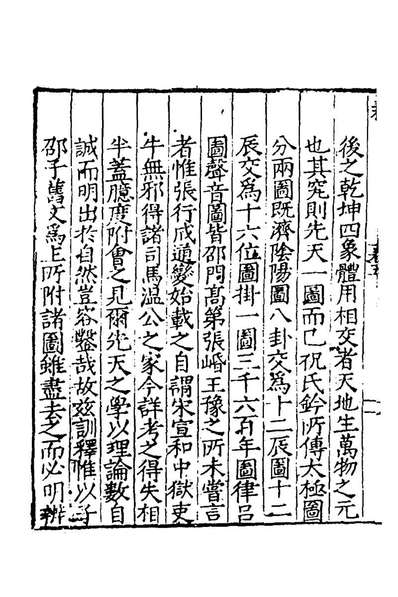 後之乾坤四象體用相交者天地生萬物之元
也其究則先天一圖而已祝氏鈐所傳太極圖
分兩圖旣濟陰陽圖八卦交爲十二辰圖十二
辰交爲十六位圖掛一圖三千六百年圖律呂
圖聲音圖皆邵門高第張㟭王豫之所未嘗言
者惟張行成通變始載之自謂宋宣和中獄吏
牛無邪得諸司馬温公之家今詳考之得失相
半蓋臆度附會之見爾先天之學以理論數自
誠而明出於自然豈容鑿哉故兹訓釋惟以子
邵子舊文爲上所附諸圖雖盡去之而必明辨